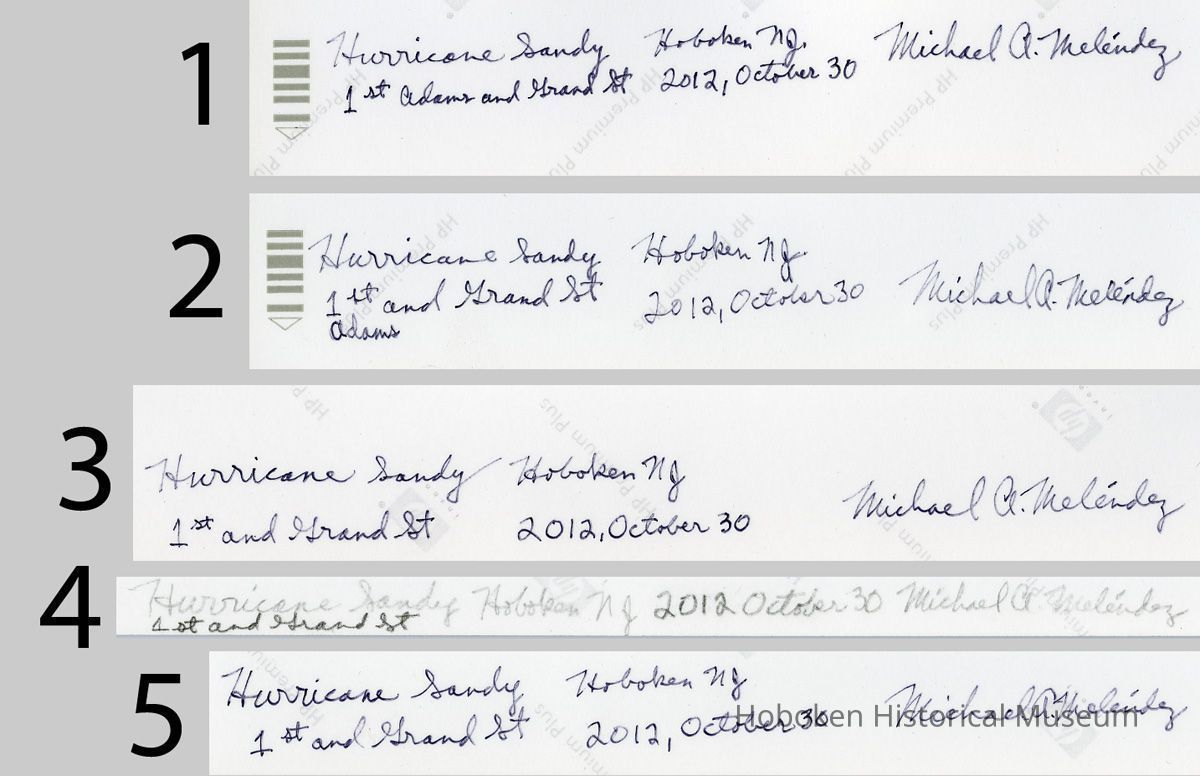 1
Hurricane Sandy Hoboken NJ. Michael A. Meléndez
1st Adams and Grand St 2012, October 30
2
Hurricane Sandy Hoboken NJ.
1st and Grand St 2012, October 30 Michael A. Meléndez
Adams
3
Hurricane Sandy Hoboken NJ
1st and Grand St 2012, October 30 Michael A. Meléndez
4
Hurricane Sandy Hoboken NJ 2012 October 30 Michael A Meléndez
1st and Grand St
5
Hurricane Sandy Hoboken NJ Michael A. Meléndez
1st and Grand St 2012, October 30
Hoboken Historical Museum
HP Premium Plus